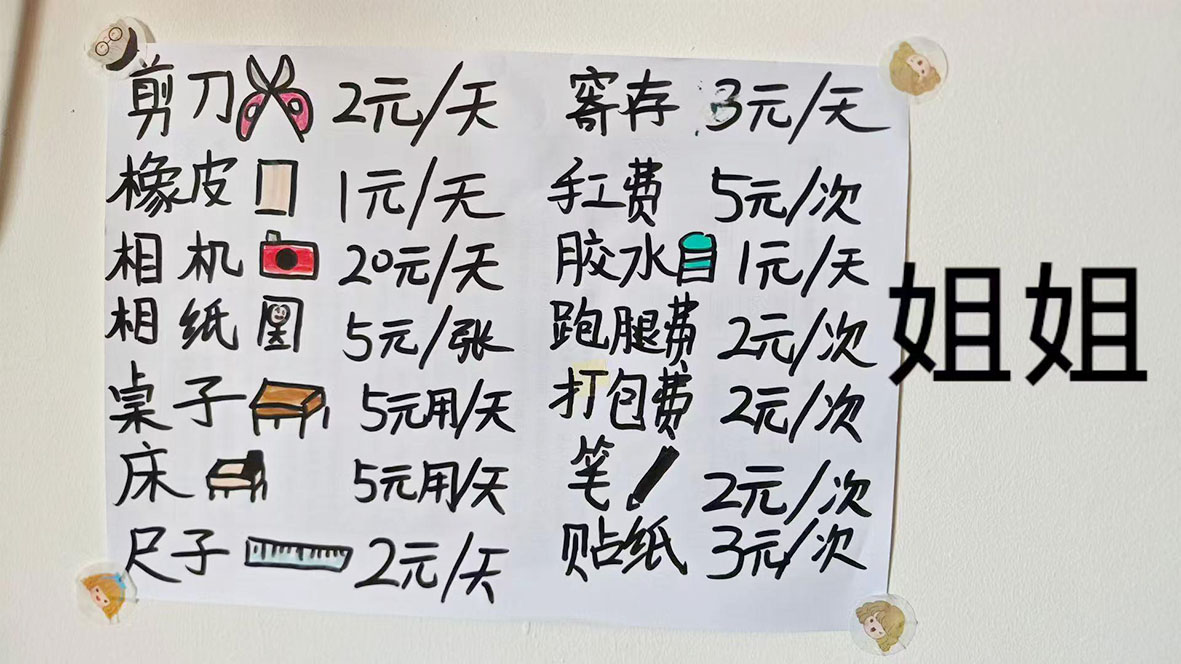 剪刀 2元/天
橡皮 1元/天
相机 20元/天
相纸 5元/张
桌子 5元用/天
床 5元用/天
尺子 2元/天
寄存 3元/天
手工费 5元/次
胶水 1元/天
跑腿费 2元/次
打包费 2元/次
笔 2元/次
贴纸 3元/次
姐姐